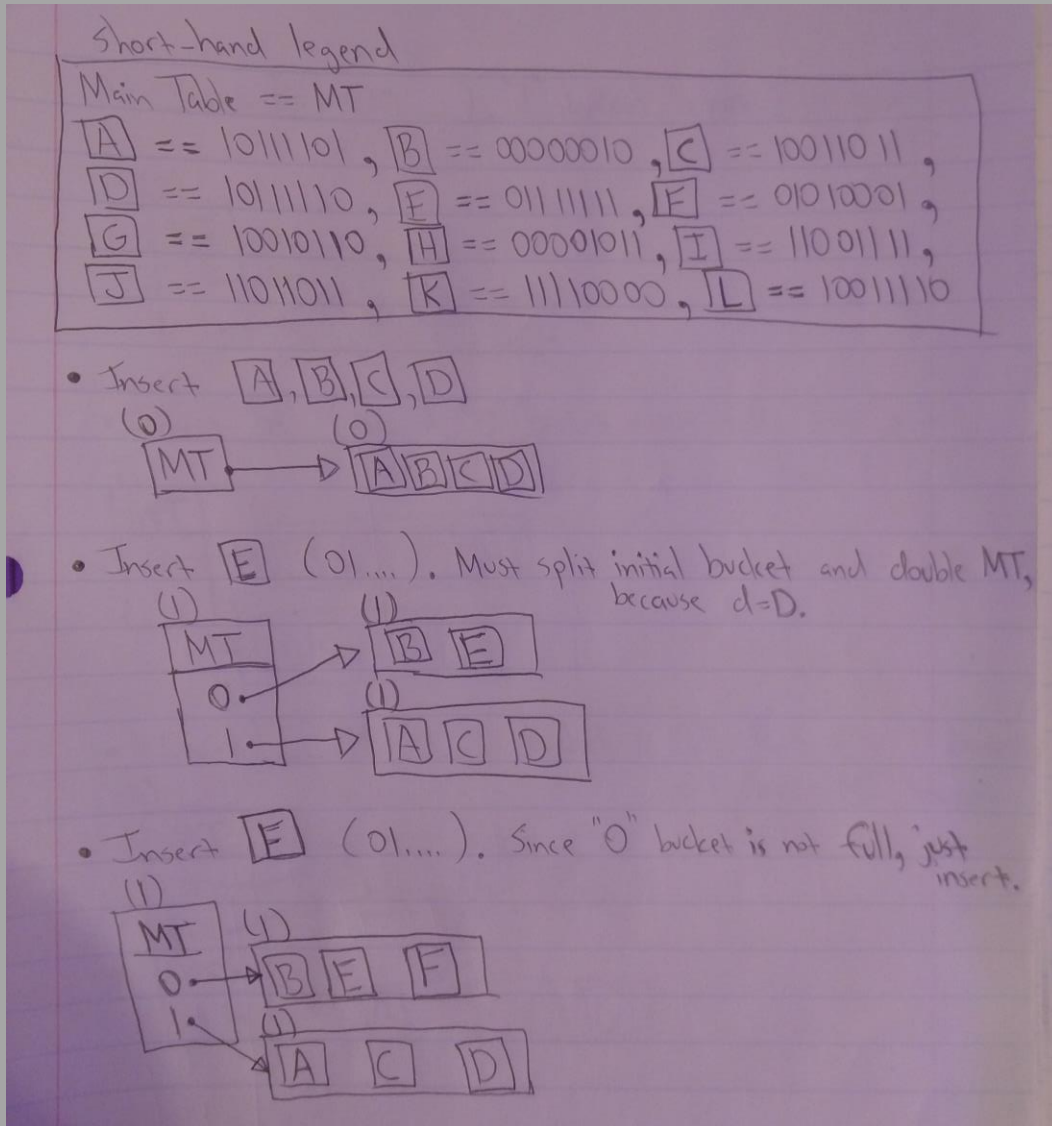 Short-hand legend
Main Table == MT
A == 10111101, B == 00000010, C == 10011011,
D == 10111110, E == 01111111, F == 01010001,
G == 10010110, H == 00001011, I == 11001111,
J == 11011011, K == 11110000, L == 10011110
• Insert A, B, C, D
(0) (0)
MT A B C D
• Insert E (01....). Must split initial bucket and double MT,
because d=D.
(1) (1)
MT B E
0 (1)
1 A C D
• Insert F (01....). Since "0" bucket is not full, just
insert.
(1) (1)
MT B E F
0
1 (1)
A C D